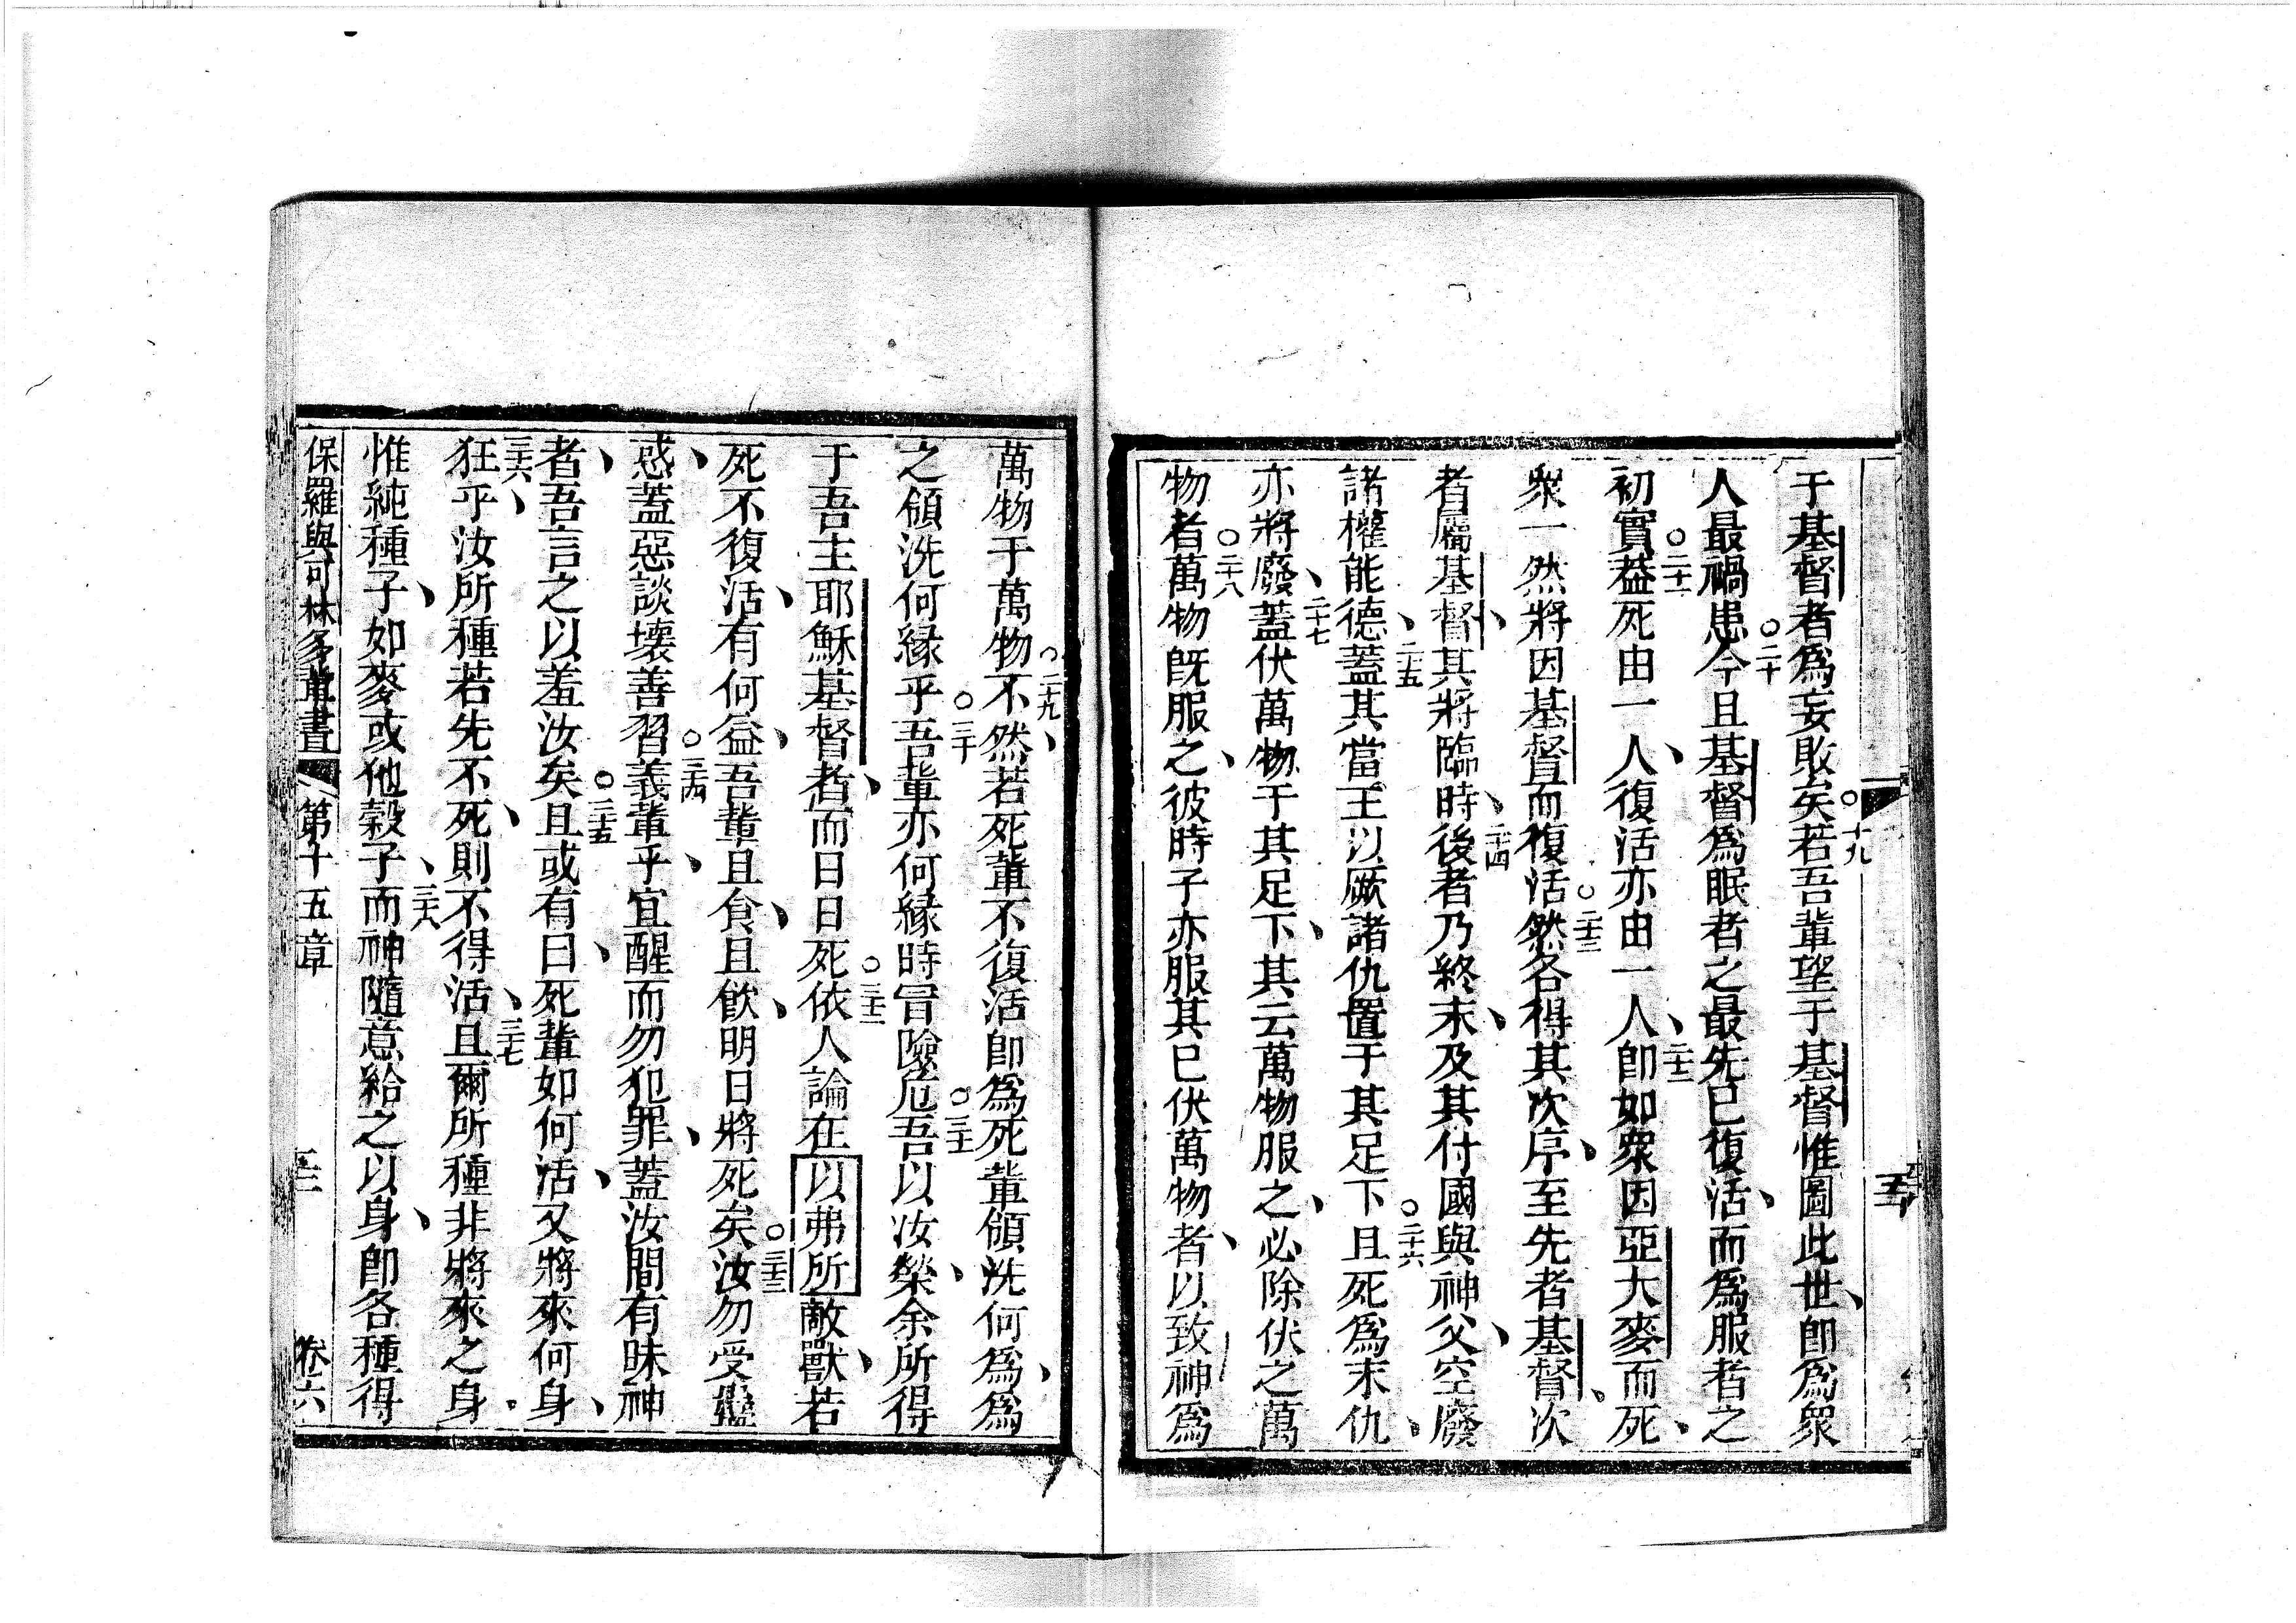 于基督者爲妄敗矣○十九若吾輩望于基督惟圖此世、卽爲衆
人最禍患○二十今且基督爲眠者之最先已復活、而爲服者之
初實○二十一蓋死由一人、復活亦由一人、二十二卽如衆因亞大麥而死、
衆一然將因基督而復活○二十三然各得其次序、至先者基督、次
者屬基督、其將臨時、二十四後者乃終末、及其付國與神父、空廢
諸權能德、二十五蓋其當王以厥諸仇置于其足下○二十六且死爲末仇、
亦將廢、二十七蓋伏萬物于其足下、其云萬物服之、必除伏之萬
物者○二十八萬物旣服之、彼時子亦服其已伏萬物者、以致神爲
萬物于萬物○二十九不然、若死輩不復活卽爲死輩領洗何爲、爲
之領洗何緣乎○三十吾輩亦何緣時冒險厄○三十一吾以汝榮、余所得
于吾主耶穌基督者、而日日死○三十二依人論在以弗所敵獸、若
死不復活、有何益、吾輩且食、且飲、明日將死矣○三十三汝勿受蠱
惑、蓋惡談壞善習○三十四義輩乎、宜醒而勿犯罪、蓋汝間有昧神
者、吾言之以羞汝矣○三十五且或有曰、死輩如何活、又將來何身、
三十六狂乎、汝所種若先不死、則不得活、三十七且爾所種非將來之身、
惟純種子、如麥或他穀子、三十八而神隨意給之以身、卽各種得
保羅與可林多輩書 第十五章 卷六